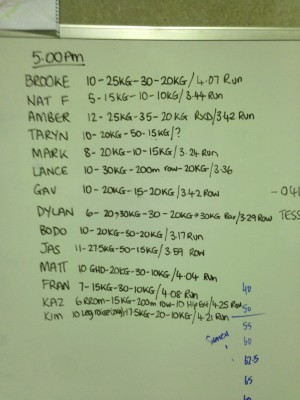 5.00pm
BROOKE 10-25KG-30-20KG/4.07 Run
NAT F 5-15KG-10-10KG/3.44 Run
AMBER 12-25KG-35-20KG RXD/3.42 Run
TARYN 10-20KG-50-15KG/?
MARK 8-20KG-10-15KG/3.24 Run
LANCE 10-30KG-200m row-20KG/3.36
GAV 10-20KG-15-20KG/3.42 Row
DYLAN 6-20+30KG-30-20KG+30KG Bar/3.29 Row TESS
BODO 10-20KG-50-20KG/3.17 Run
JAS 11-27.5KG-50-15KG/3.59 Row
MATT 10 GHD-20KG-30-10KG/4.04 Run
FRAN 7-15KG-30-10KG/4.08 Run
KAZ 6 RROM-15KG-200m row-10 Hip Ext/4.25 Row
KIM 10 Leg raise 17.5KG-20-10KG/4.21 Run
40
50
55
60
62.5
65